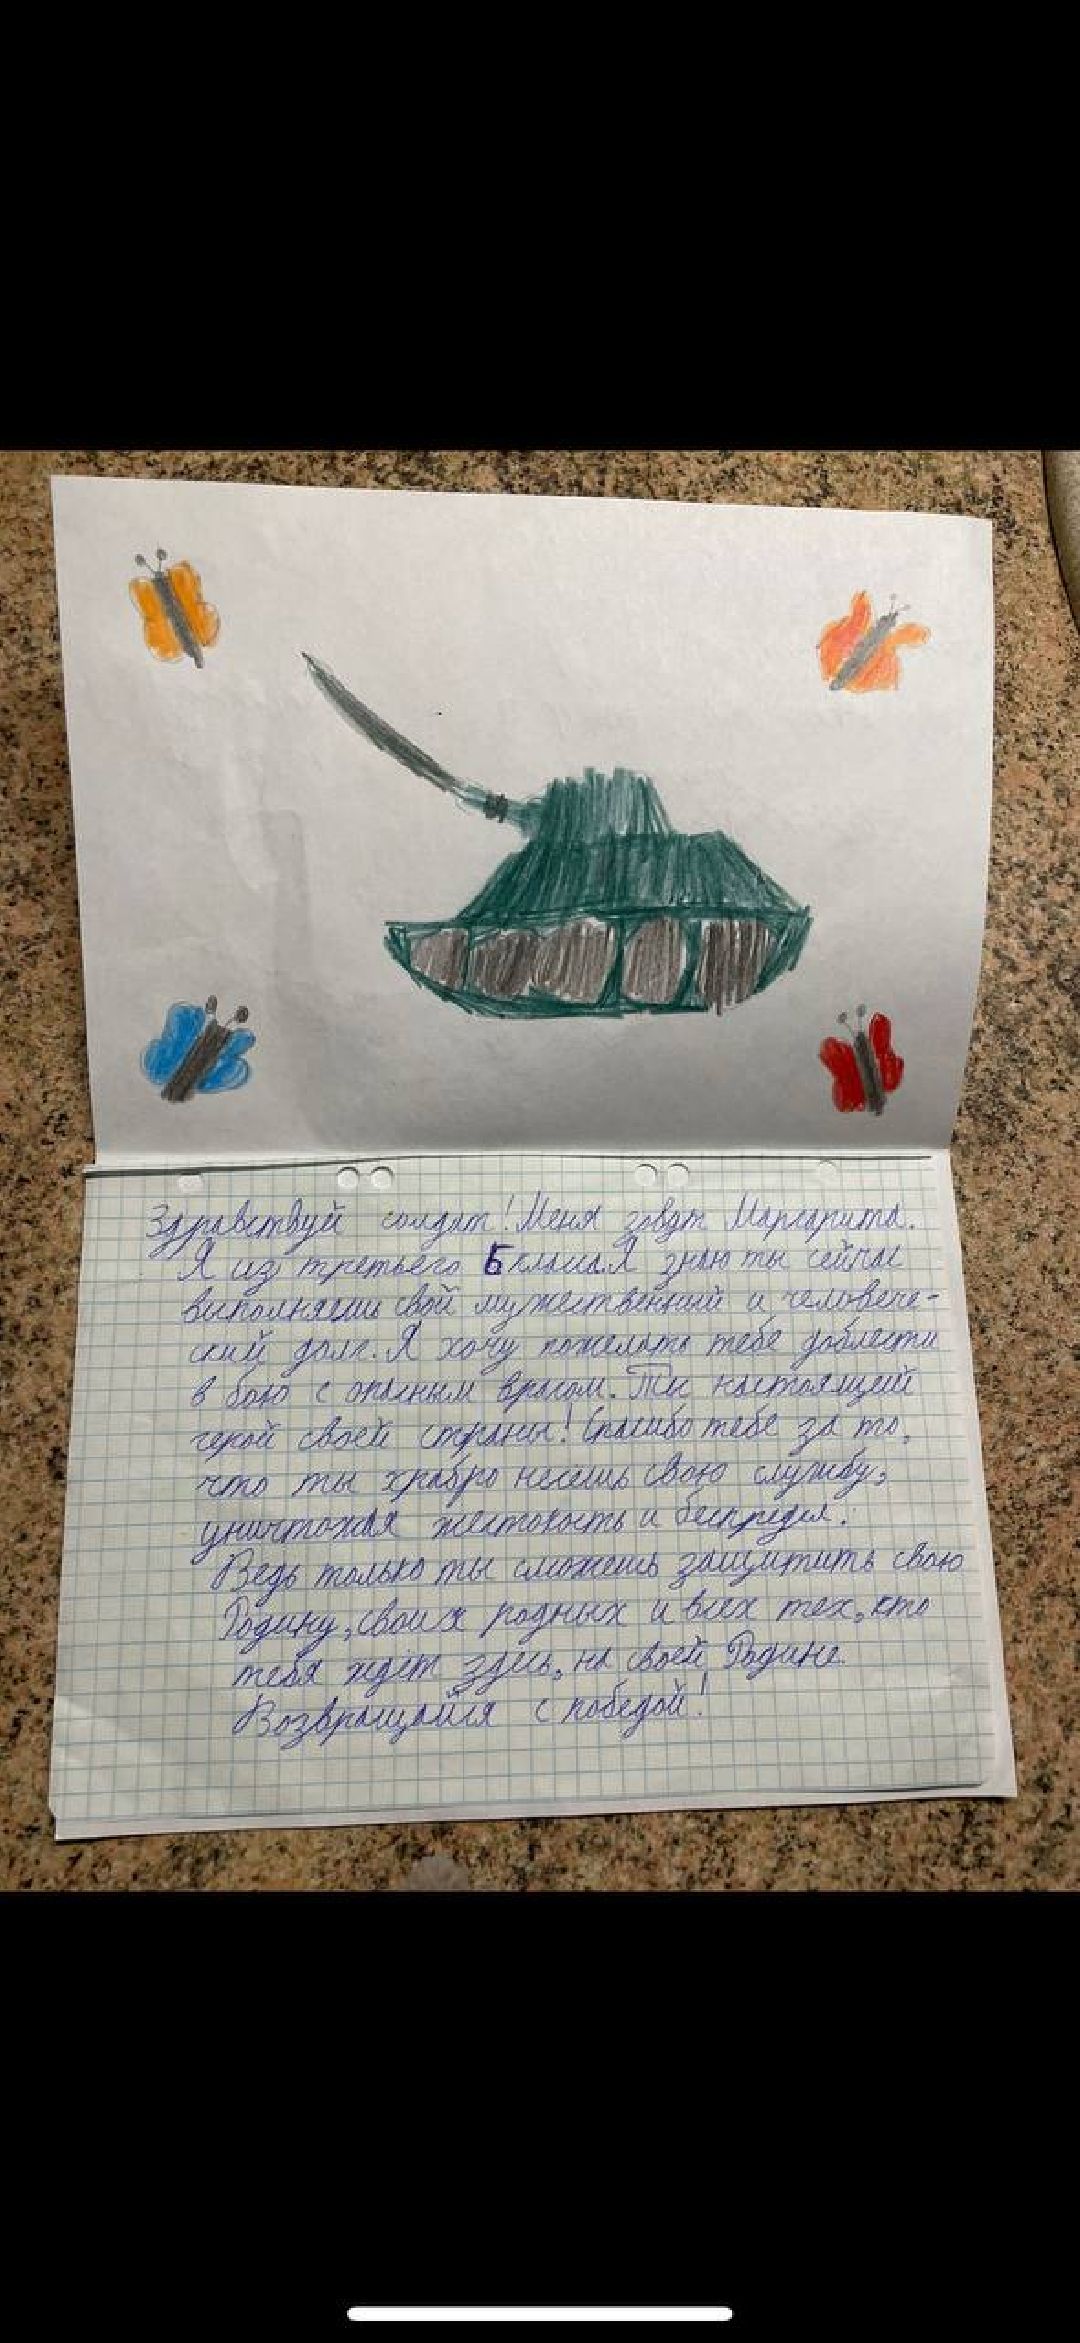 Здравствуй солдат! Меня зовут Маргарита.
Я из третьего Б класса. Я знаю ты сейчас
выполняеш свой мужественный и человече-
ский долг. Я хочу пожелать тебе доблести
в бою с опасным врагом. Ты настоящий
герой своей страны! Спасибо тебе за то,
что ты храбро несёшь свою службу,
уничтожая жестокость и беспредел.
Ведь только ты сможешь защитить свою
Родину, своих родных и всех тех, кто
тебя ждёт здесь, на своей Родине.
Возвращайся с победой!